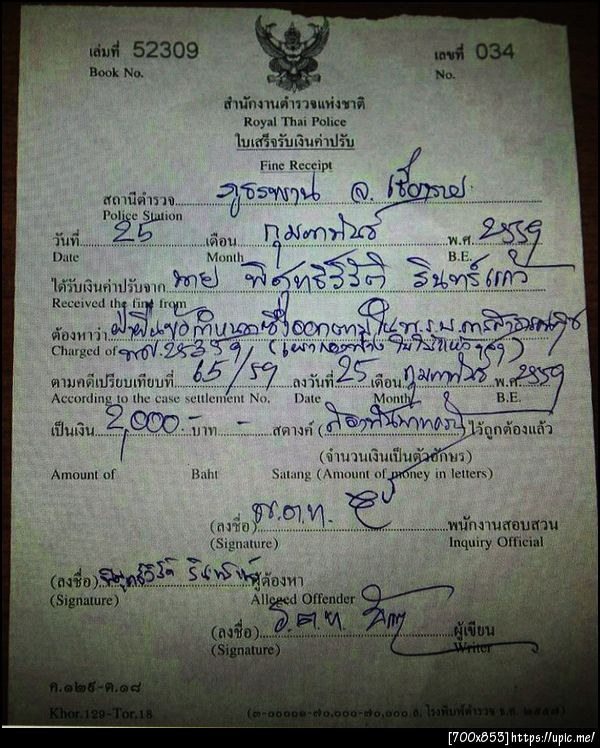 เล่มที่ 52309 เลขที่ 034
Book No. No.
สำนักงานตำรวจแห่งชาติ
Royal Thai Police
ใบเสร็จรับเงินค่าปรับ
Fine Receipt
สถานีตำรวจ ภูธรพาน จ. เชียงราย
Police Station
วันที่ 25 เดือน กุมภาพันธ์ พ.ศ. 2559
Date Month B.E.
ได้รับเงินค่าปรับจาก นาย พิสุทธิ์วิรัติ รินทร์แก้ว
Received the fine from
ต้องหาว่า ฝ่าฝืนข้อกำหนดซึ่งออกตามใน พ.ร.บ. การสาธารณสุข
Charged of
ตามคดีเปรียบเทียบที่ 65/59 ลงวันที่ 25 เดือน กุมภาพันธ์ พ.ศ. 2559
According to the case settlement No. Date Month B.E.
เป็นเงิน 2,000.- บาท - สตางค์ (สองพันบาทถ้วน) ไว้ถูกต้องแล้ว
(จำนวนเงินเป็นตัวอักษร)
Amount of Baht Satang (Amount of money in letters)
(ลงชื่อ) พ.ต.ท. พนักงานสอบสวน
(Signature) Inquiry Official
(ลงชื่อ) ผู้ต้องหา
(Signature) Alleged Offender
(ลงชื่อ) ผู้เขียน
(Signature) Writer
ค.๑๒๙-ต.๑๘
Khor.129-Tor.18 (๓-๐๐๐๐๑-๗๐,๐๐๐-๗๐,๐๐๐ ล. โรงพิมพ์ตำรวจ ธ.ค. ๒๕๕๗)
[700x853]https://upic.me/